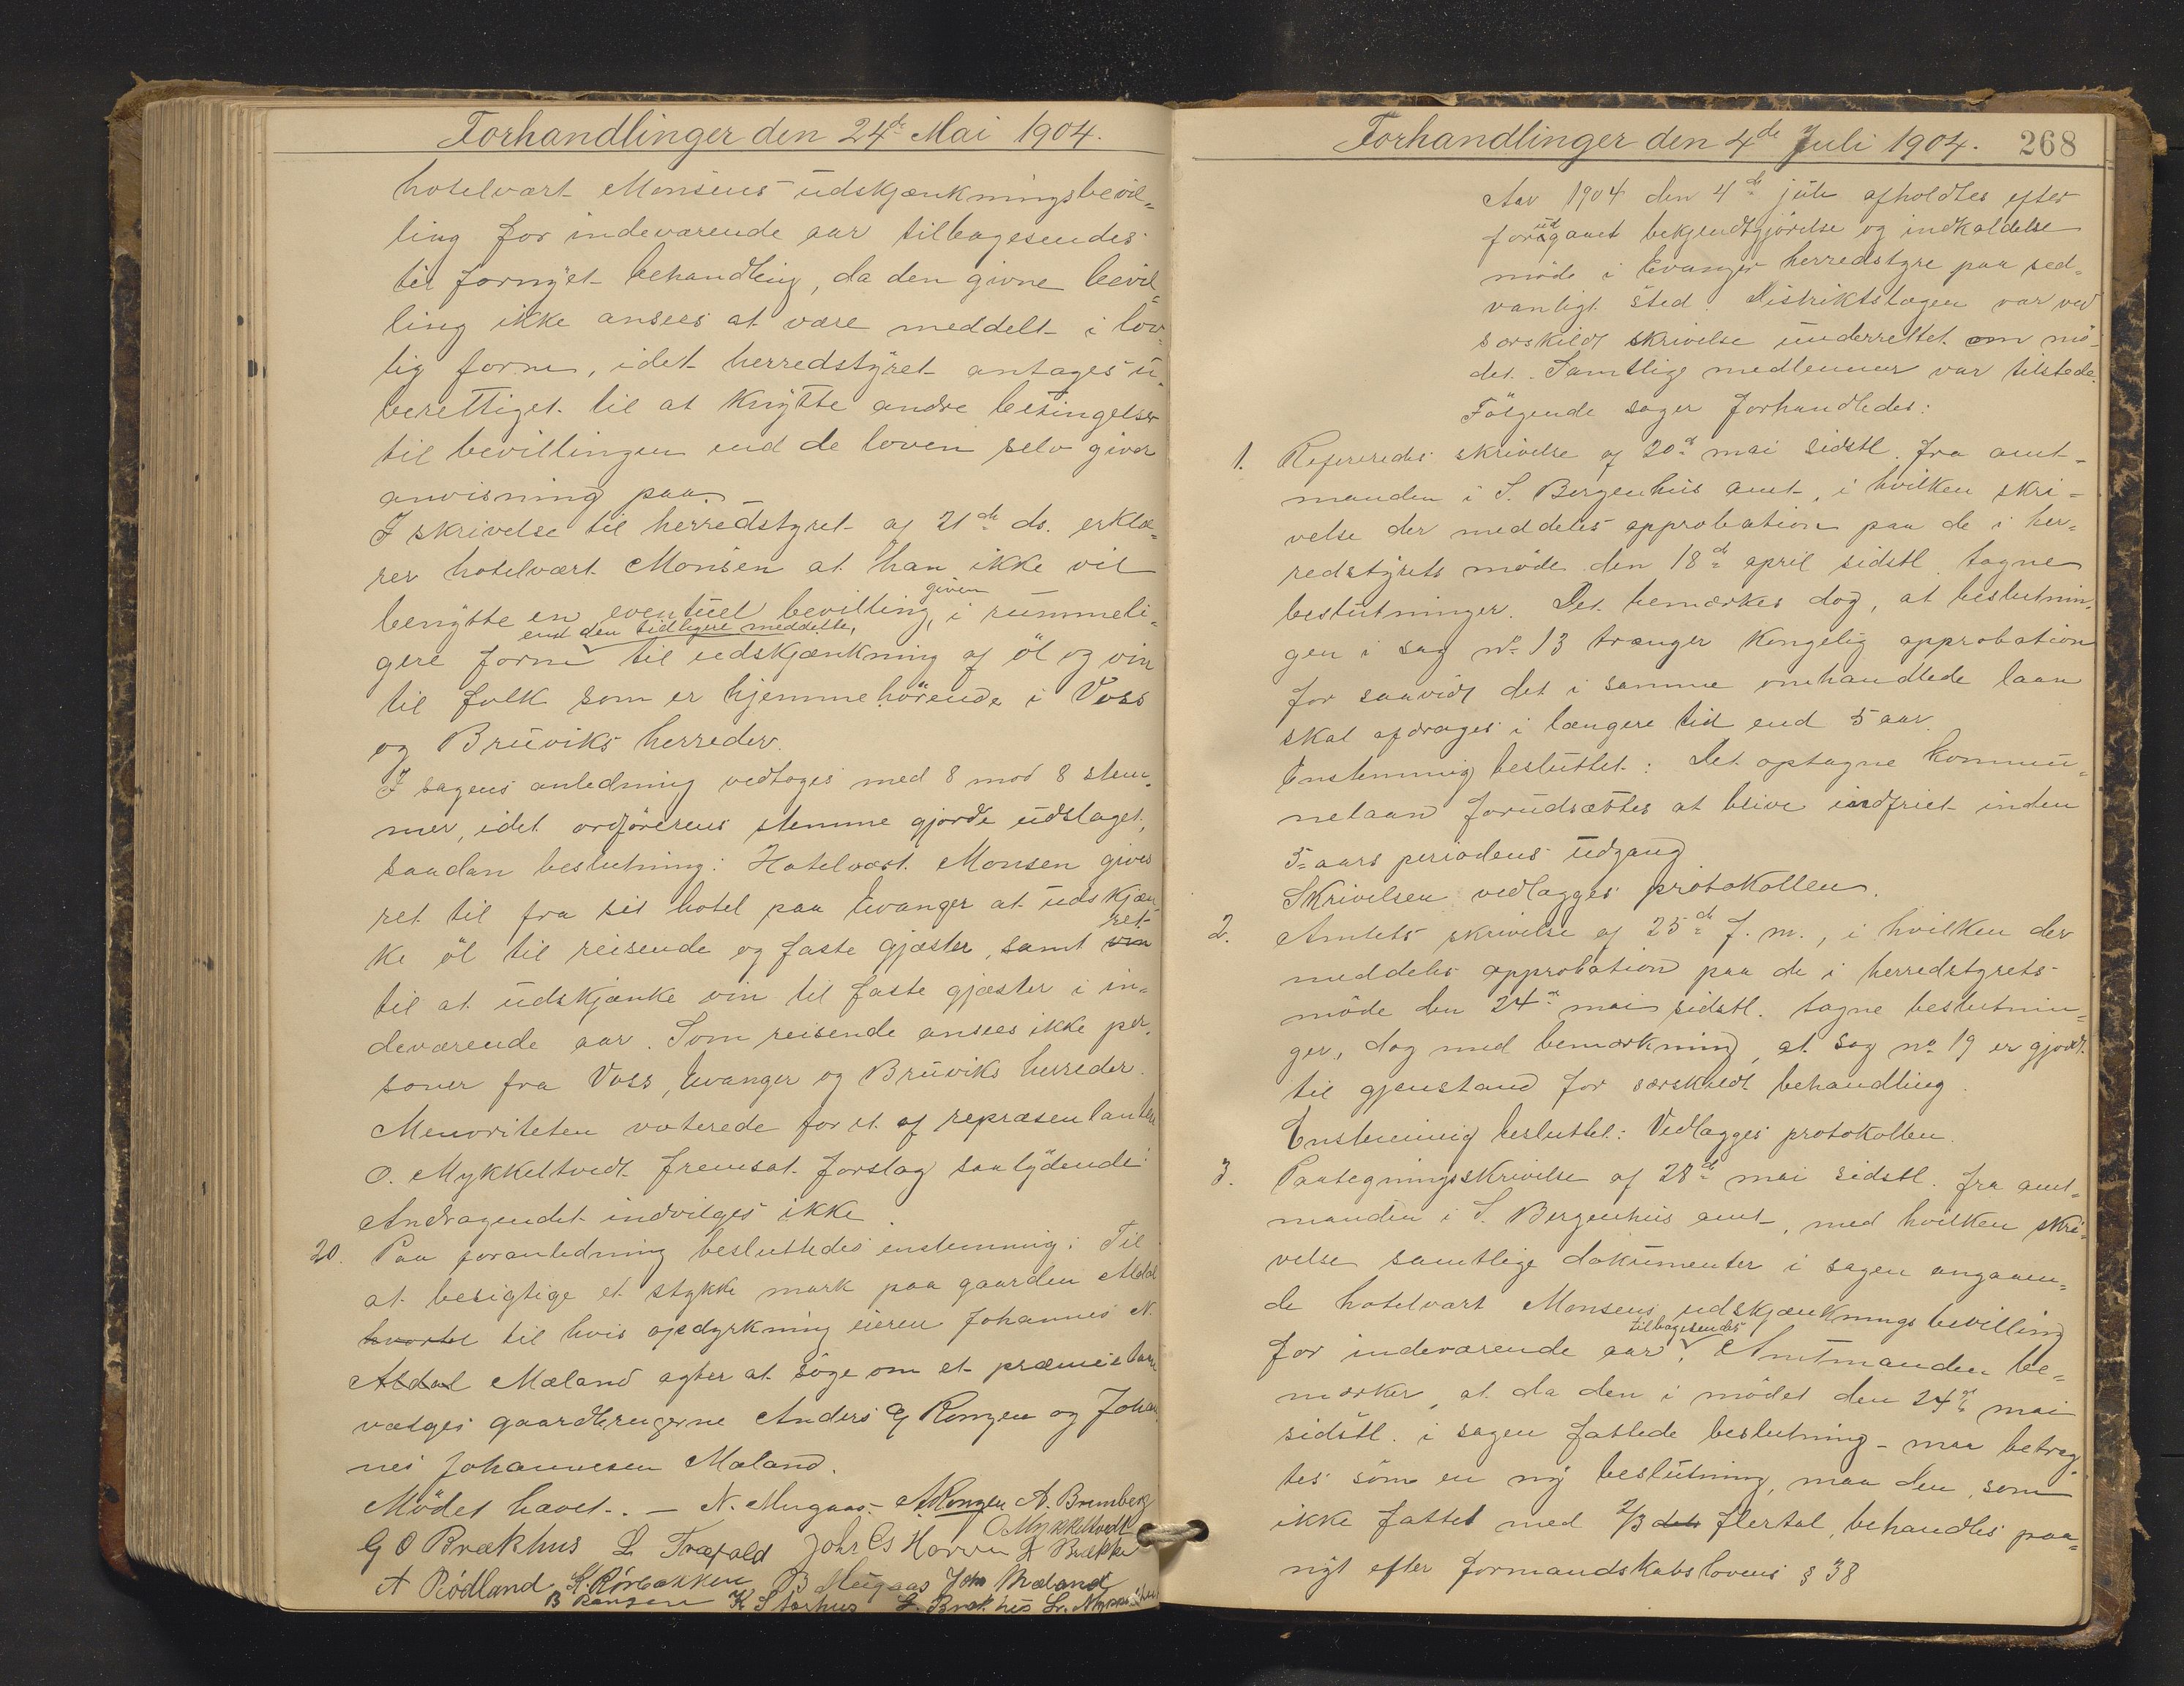 Forhandlinger den 24de Mai 1904.
hotelvært Monsens udskjænkningsbevil=
ling for indeværende aar tilbagesendes
til fornyet behandling, da den givne bevil=
ling ikke ansees at være meddelt i lov=
lig form, idet herredstyret antages u=
berettiget til at knytte andre betingelser
til bevillingen end de loven selv giver
anvisning paa. –
I skrivelse til herredstyret af 21de ds. erklæ=
rer hotelvært Monsen at han ikke vil
given
benytte en eventuel bevilling, i rummeli=
end den tidligere meddelte,
gere form til udskjænkning af öl og vin
til folk som er hjemmehörende i Voss
og Bruviks herreder.
I sagens anledning vedtoges med 8 mod 8 stem=
mer, idet ordförerens stemme gjorde udslaget,
saadan beslutning: Hotelvært Monsen gives
ret til fra sit hotel paa Evanger at udskjæn=
ret
ke öl til reisende og faste gjæster, samt vin
til at udskjænke vin til faste gjæster i in=
deværende aar. Som reisende ansees ikke per=
soner fra Voss, Evanger og Bruviks herreder.
Menoriteten voterede for et af repræsentanten
O. Mykkeltvedt fremsat forslag saalydende:
Andragendet indvilges ikke.
20. Paa foranledning besluttedes enstemmig: Til
at besigtige et stykke mark paa gaarden Aldal
hvortil til hvis opdyrkning eieren Johannes N.
Aldal Mæland agter at söge om et præmielaan
vælges gaardbrugerne Anders G Rongen og Johan=
nes Johannesen Mæland.
Mödet hævet. – N. Mugaas A Rongen A. Brunborg
O Mykkeltvedt
G O Brækhus L Træfald Johs Cs Horvei A Brække
A Rödland K. Rørbakken B Mugaas Joh Mæland
B Rongen K Storhus L. Brækhus
Forhandlinger den 4de Juli 1904. 268
Aar 1904 den 4de juli afholdtes efter
ud
foregaaet bekjendtgjörelse og indkaldelse
möde i Evanger herredstyre paa sed=
vanligt sted. Distriktslægen var ved
særskildt skrivelse underrettet om mö=
det. Samtlige medlemmer var tilstede.
Fölgende sager forhandledes:
1. Refereredes skrivelse af 20de mai sidstl. fra amt=
manden i S. Bergenhus amt, i hvilken skri=
velse der meddeles approbation paa de i her=
redstyrets möde den 18de april sidstl. tagne
beslutninger. Det bemærkes dog, at beslutnin=
gen i sag no 13 trænger kongelig approbation
for saavidt det i samme omhandlede laan
skal afdrages i længere tid end 5 aar.
Enstemmig besluttet: Det optagne kommu=
nelaan forudsættes at blive indfriet inden
5-aars periodens udgang.
Skrivelsen vedlægges protokollen.
2. Amtets skrivelse af 25de f. m., i hvilken der
meddeles approbation paa de i herredstyrets
möde den 24de mai sidstl. tagne beslutnin=
ger, dog med bemærkning, at sag no 19 er gjort
til gjenstand for særskildt behandling.
Enstemmig besluttet: Vedlægges protokollen.
3. Paategningsskrivelse af 28de mai sidstl. fra amt=
manden i S. Bergenhus amt, med hvilken skri=
velse samtlige dokumenter i sagen angaaen=
de hotelvært Monsens udskjænkningsbevilling
tilbagesendes
for indeværende aar. Amtmanden be=
mærker, at da den i mödet den 24de mai
sidstl. i sagen fattede beslutning – maa betrag=
tes som en ny beslutning, maa den, som
ikke fattet med 2/3 dels flertal, behandles paa=
nyt efter formandskabslovens § 38